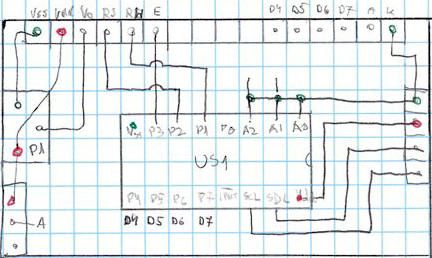 VSS VDD V0 RS RW E D4 D5 D6 D7 A K
P1
VSS P3 P2 P1 P0 A2 A1 A0
US1
P4 P5 P6 P7 INT SCL SDA
D4 D5 D6 D7
A